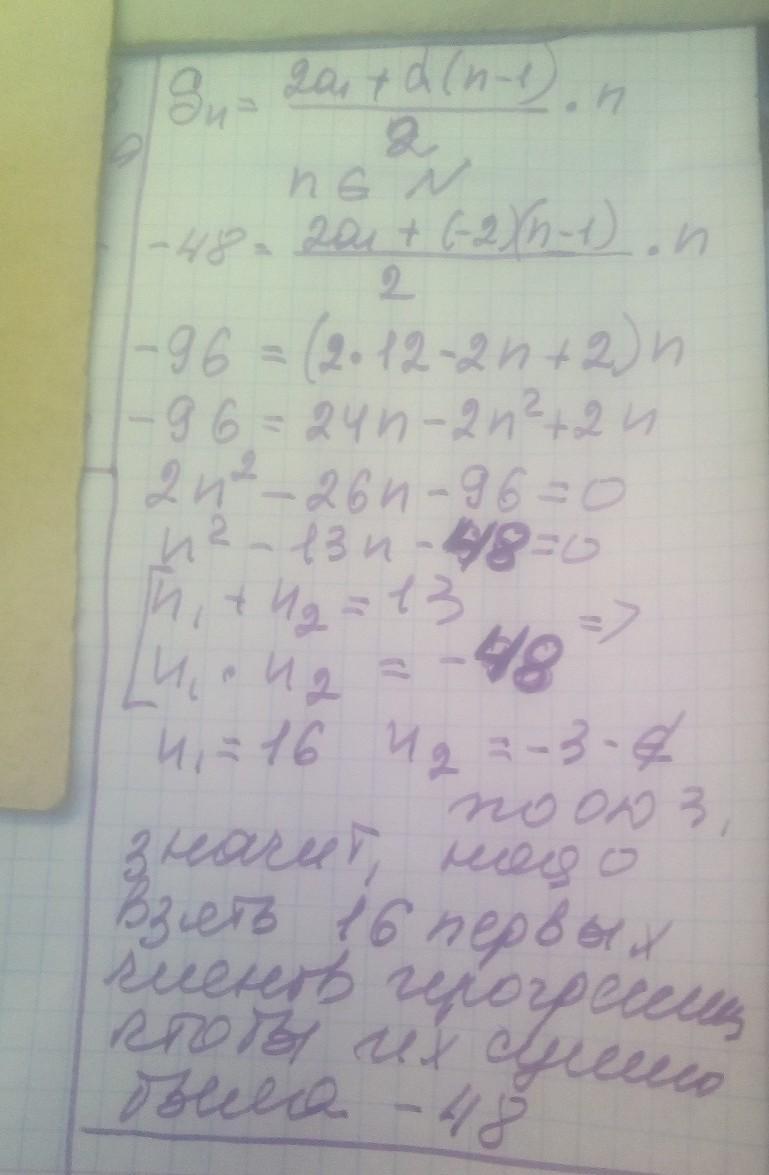 Sn = (2a₁ + d(n-1))/2 · n
n ∈ N
-48 = (2a₁ + (-2)(n-1))/2 · n
-96 = (2·12-2n+2)n
-96 = 24n-2n²+2n
2n²-26n-96=0
n²-13n-48=0
[n₁+n₂=13
n₁·n₂ = -48 =>
n₁=16 n₂=-3-∉
по ОДЗ,
значит, надо
взять 16 первых
членов прогрессии,
чтобы их сумма
была -48